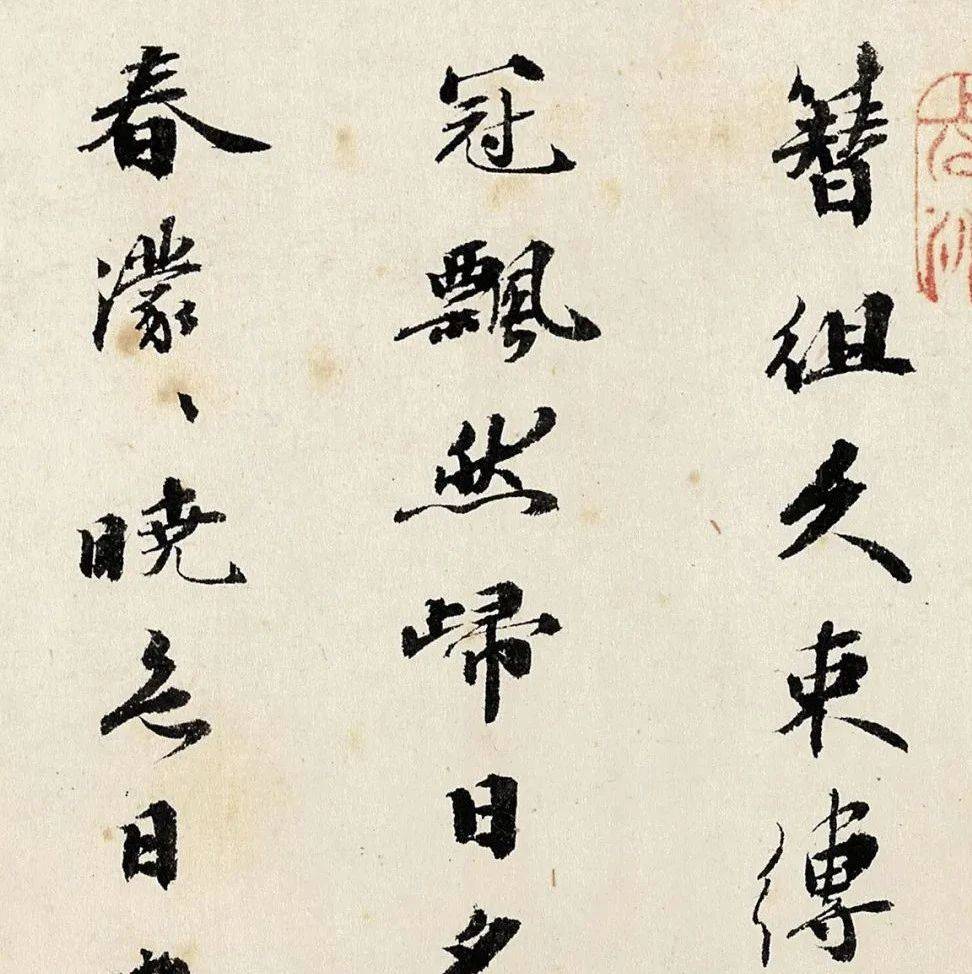 簪組久束縛
冠飄然歸日
春濛〻曉色日